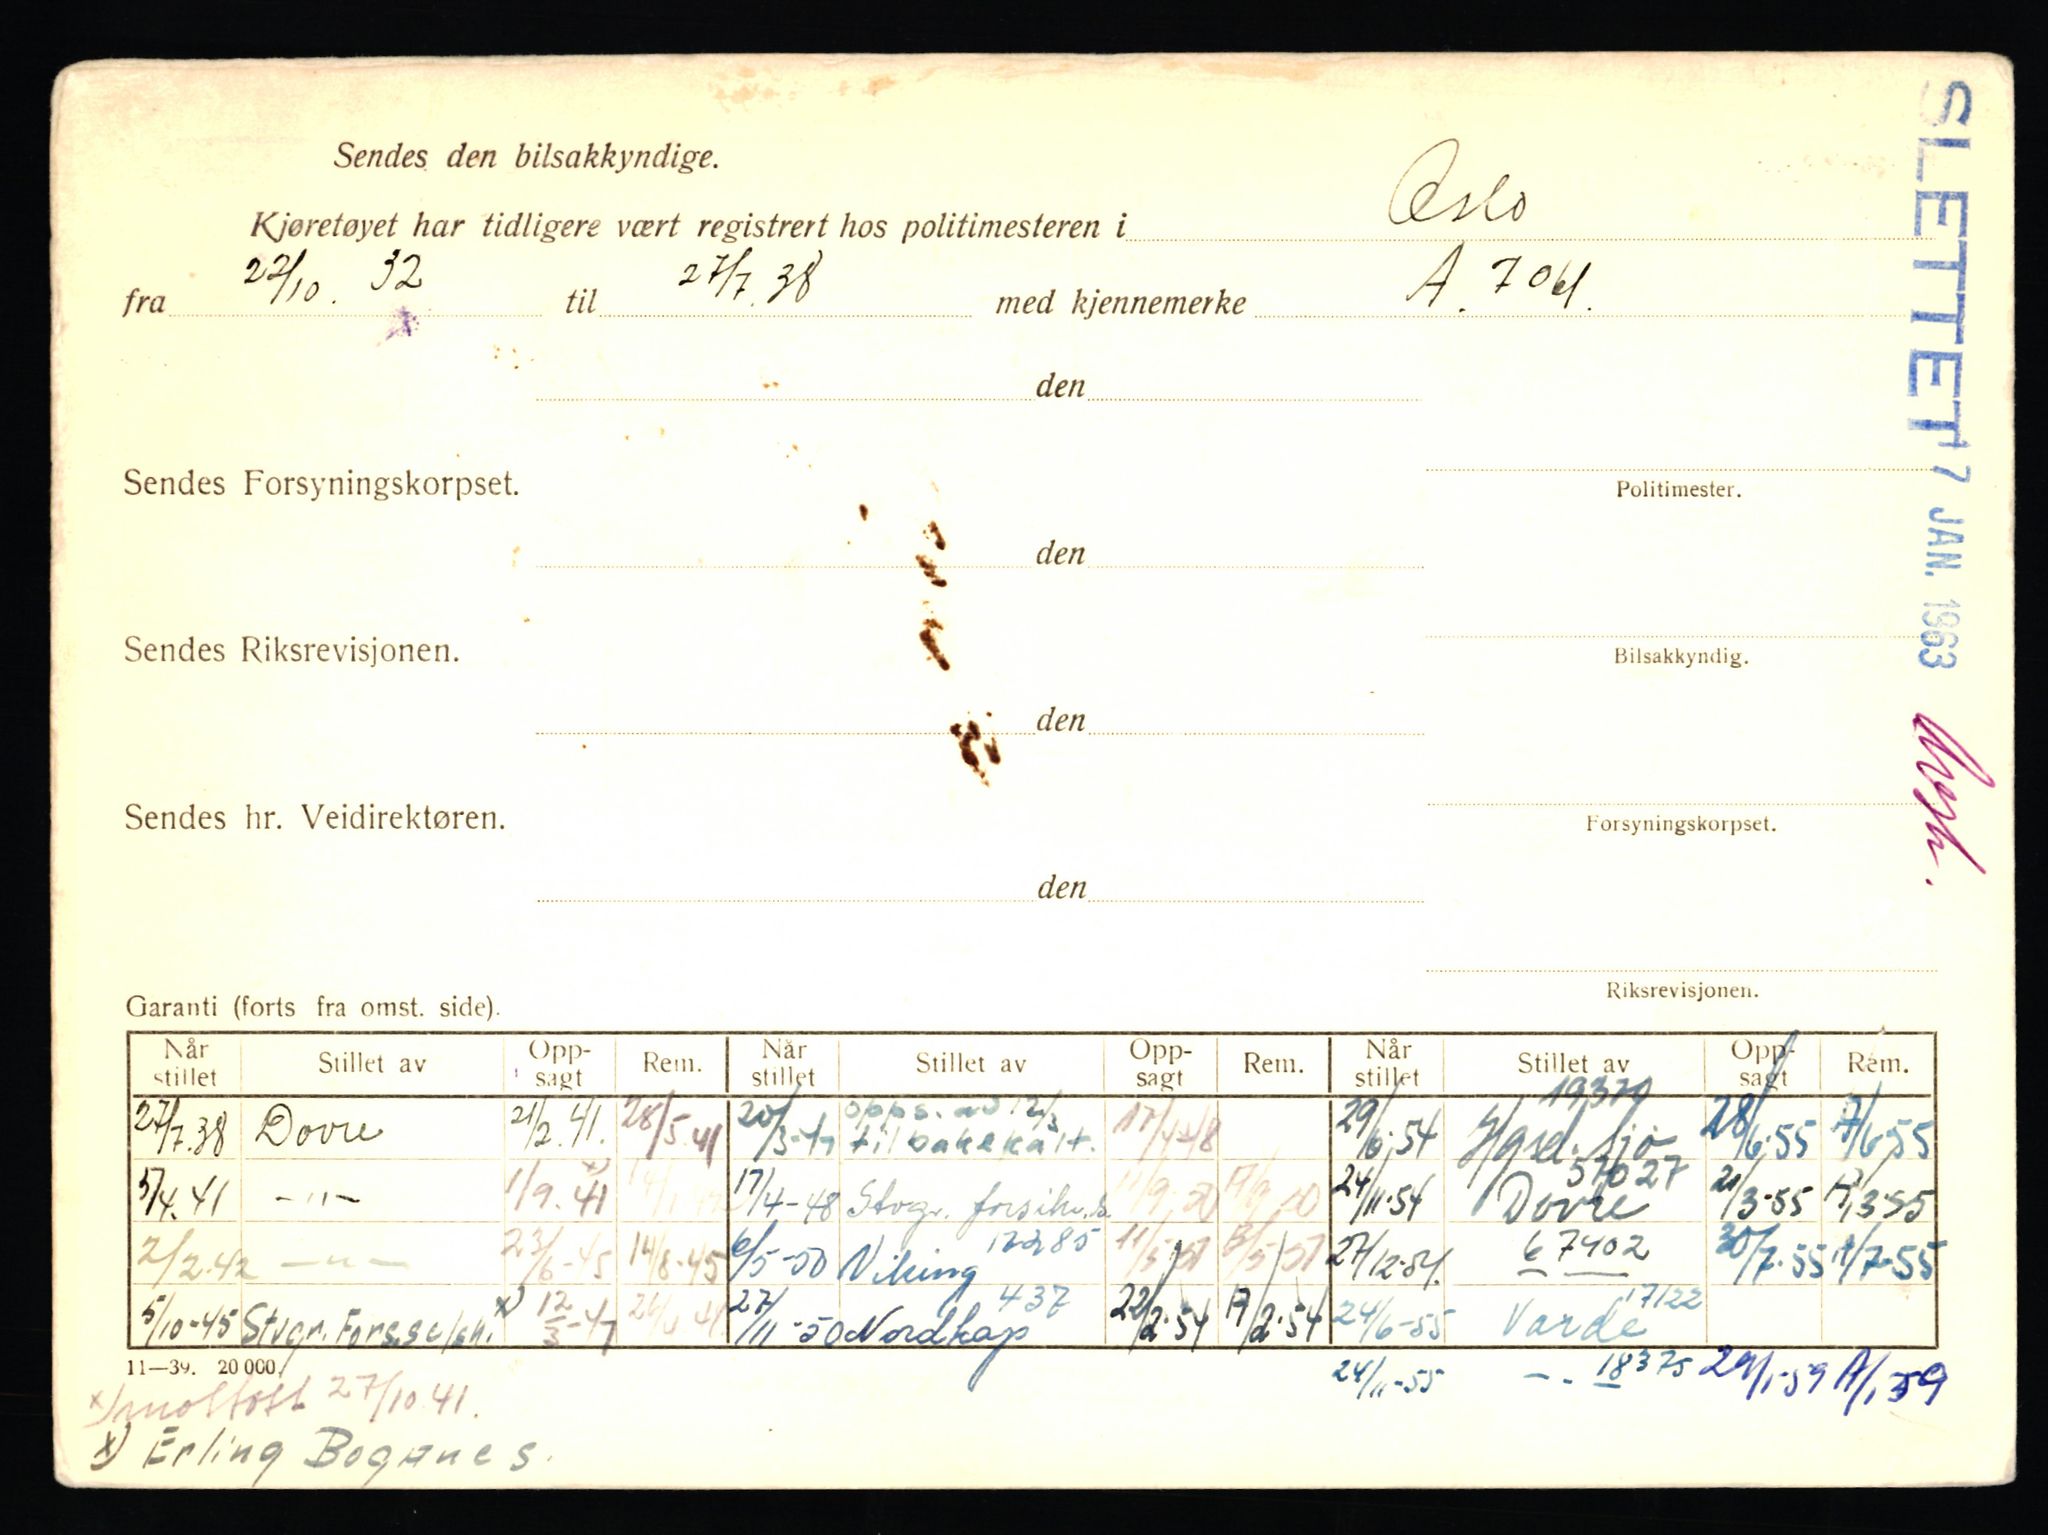 Sendes den bilsakkyndige.
Kjøretøyet har tidligere vært registrert hos politimesteren i Oslo
fra 22/10. 32 til 27/7. 38 med kjennemerke A. 7061.
den
Politimester.
Sendes Forsyningskorpset.
den
Bilsakkyndig.
Sendes Riksrevisjonen.
den
Forsyningskorpset.
Sendes hr. Veidirektøren.
den
Riksrevisjonen.
SLETTET 17 JAN. 1963
Garanti (forts fra omst. side).
Når stillet Stillet av Opp-sagt Rem. Når stillet Stillet av Opp-sagt Rem. Når stillet Stillet av Opp-sagt Rem.
27/7.38 Dovre 21/2.41. 28/5.41 20/3-47 opps. av 12/3 tilbakekalt. 17/4-48 29/6.54 19379 Hgsd. Sjø 28/6.55 A/6.55
5/4.41 -"- 1/9.41 x) 17/4-48 Stvgr. forsikr.s. 24/11-54 57027 Dovre 21/3-55 A/3-55
2/2.42 -"- 23/6-45 14/8-45 6/5-50 Viking 12285 27/12.54. 67402 30/7.55 A/7.55
5/10-45 Stvgr. Fors.selsk. x) 12/3-47 27/11-50 Nordkap 437 22/2.54 A/2.54 24/6-55 Varde 17122
11—39. 20 000. 24/11-55 -"- 18375 29/1-59 A/1 59
x) mottatt 27/10.41.
x) Erling Boganes.